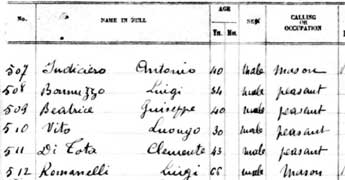 No. NAME IN FULL AGE SEX CALLING OR OCCUPATION
Yrs. Mo.
507 Indiciero Antonio 40 male Mason
508 Bornuzzo Luigi 34 male peasant
509 Beatrice Giuseppe 40 male peasant
510 Vito Luongo 30 male peasant
511 Di Tota Clemente 43 male peasant
512 Romanelli Luigi male Mason